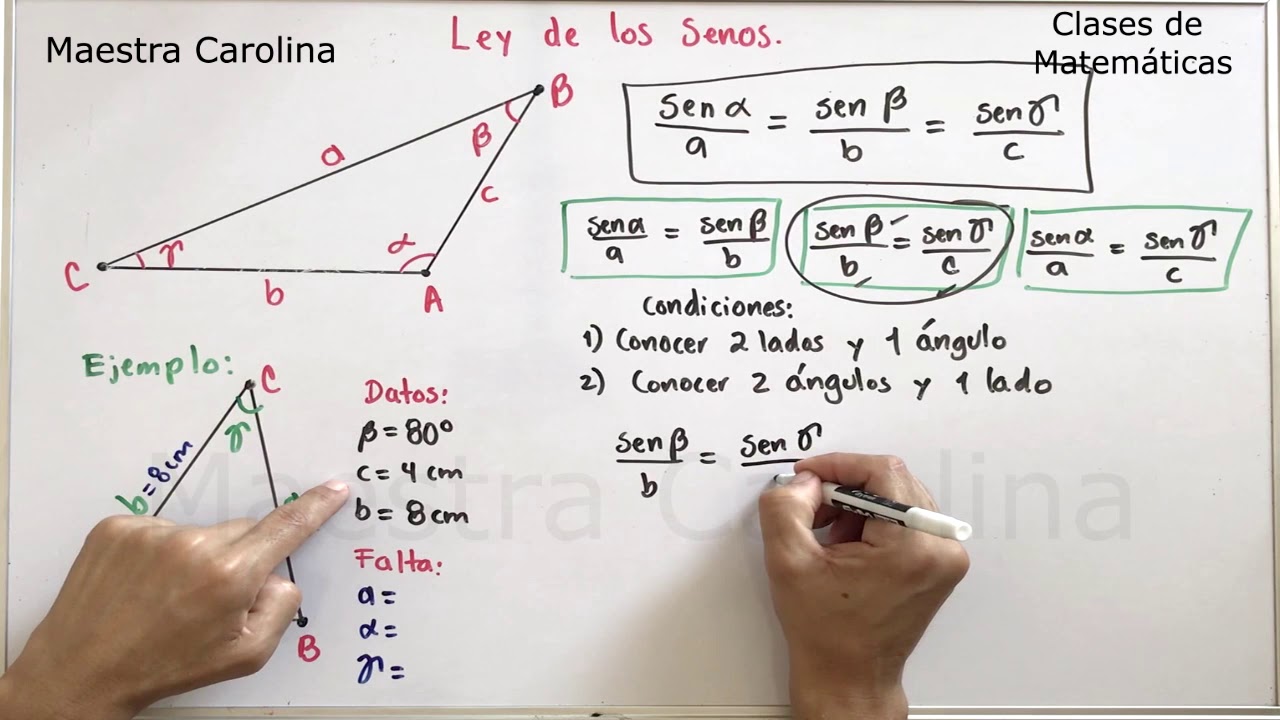 Maestra Carolina
Ley de los Senos.
Clases de
Matemáticas
B
β
a
c
C
γ
α
b
A
sen α / a = sen β / b = sen γ / c
sen α / a = sen β / b
sen β / b = sen γ / c
sen α / a = sen γ / c
Condiciones:
1) Conocer 2 lados y 1 ángulo
2) Conocer 2 ángulos y 1 lado
Ejemplo:
C
γ
b = 8 cm
B
Datos:
β = 80°
c = 4 cm
b = 8 cm
Falta:
a =
α =
γ =
sen β / b = sen γ
Maestra Carolina